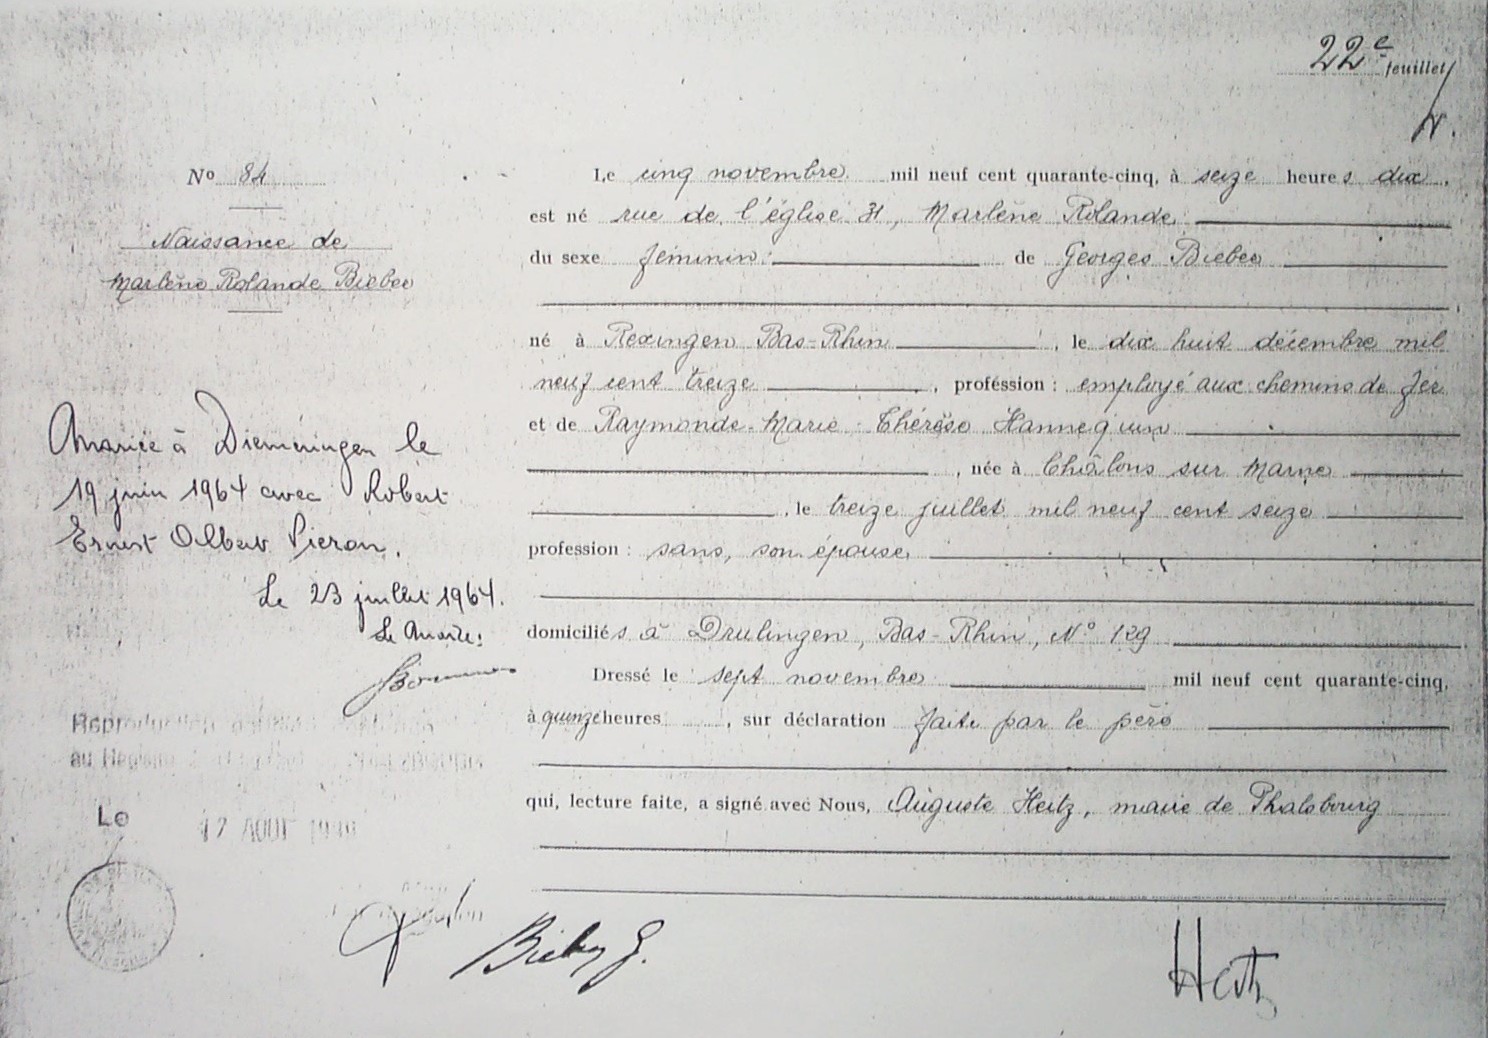 22e feuillet
H.
No 84
Naissance de
Marlène Rolande Bieber
Mariée à Diemeringen le
19 juin 1964 avec Robert
Ernest Albert Pieron.
Le 23 juillet 1964.
Le Maire:
Le cinq novembre mil neuf cent quarante-cinq, à seize heures dix,
est né rue de l'église 31, Marlène Rolande
du sexe féminin. de Georges Bieber
né à Rexingen Bas-Rhin, le dix huit décembre mil
neuf cent treize, profession : employé aux chemins de fer
et de Raymonde Marie Thérèse Hannequin
, née à Châlons sur Marne
, le treize juillet mil neuf cent seize
profession : sans, son épouse,
domiciliés à Drulingen, Bas-Rhin, No 129
Dressé le sept novembre mil neuf cent quarante-cinq,
à quinze heures, sur déclaration faite par le père
qui, lecture faite, a signé avec Nous, Auguste Hertz, maire de Phalsbourg
Reproduction
au Registre
Le AOUT
Bieber G.
Hertz